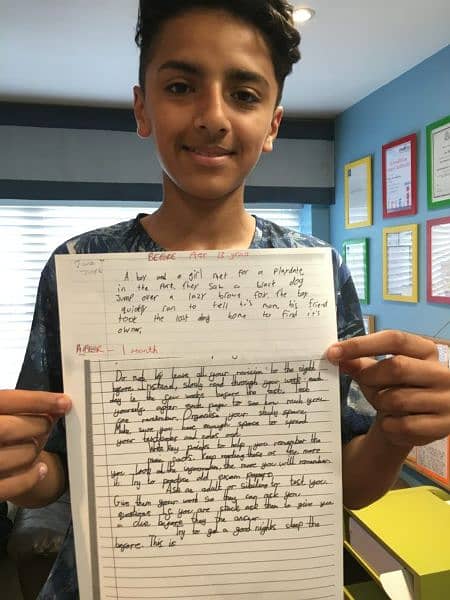 BEFORE Age 13 years
A boy and a girl met for a playdate
in the Park. They saw a black dog
Jump over a lazy brown fox. The boy
quickly ran to tell his mom, his friend
took the lost dog home to find it's
owner.
AFTER - 1 month
Do not leave all your revision to the night
before. Instead, slowly read through your work each
day in the few weeks before the test. Test
yourself after each
Organise your study space.
Make sure you have enough space to spread
your textbooks and notes out.
Write key to help you remember the
main Keep reading these as the more
you look at the information the more you will remember
it. Try to practise old exam papers.
Ask an adult or sibling to test you.
Give them your work so they can ask you
questions. If you are stuck ask them to give you
a clue before they the answer.
Try to get a good nights sleep the
before. This is